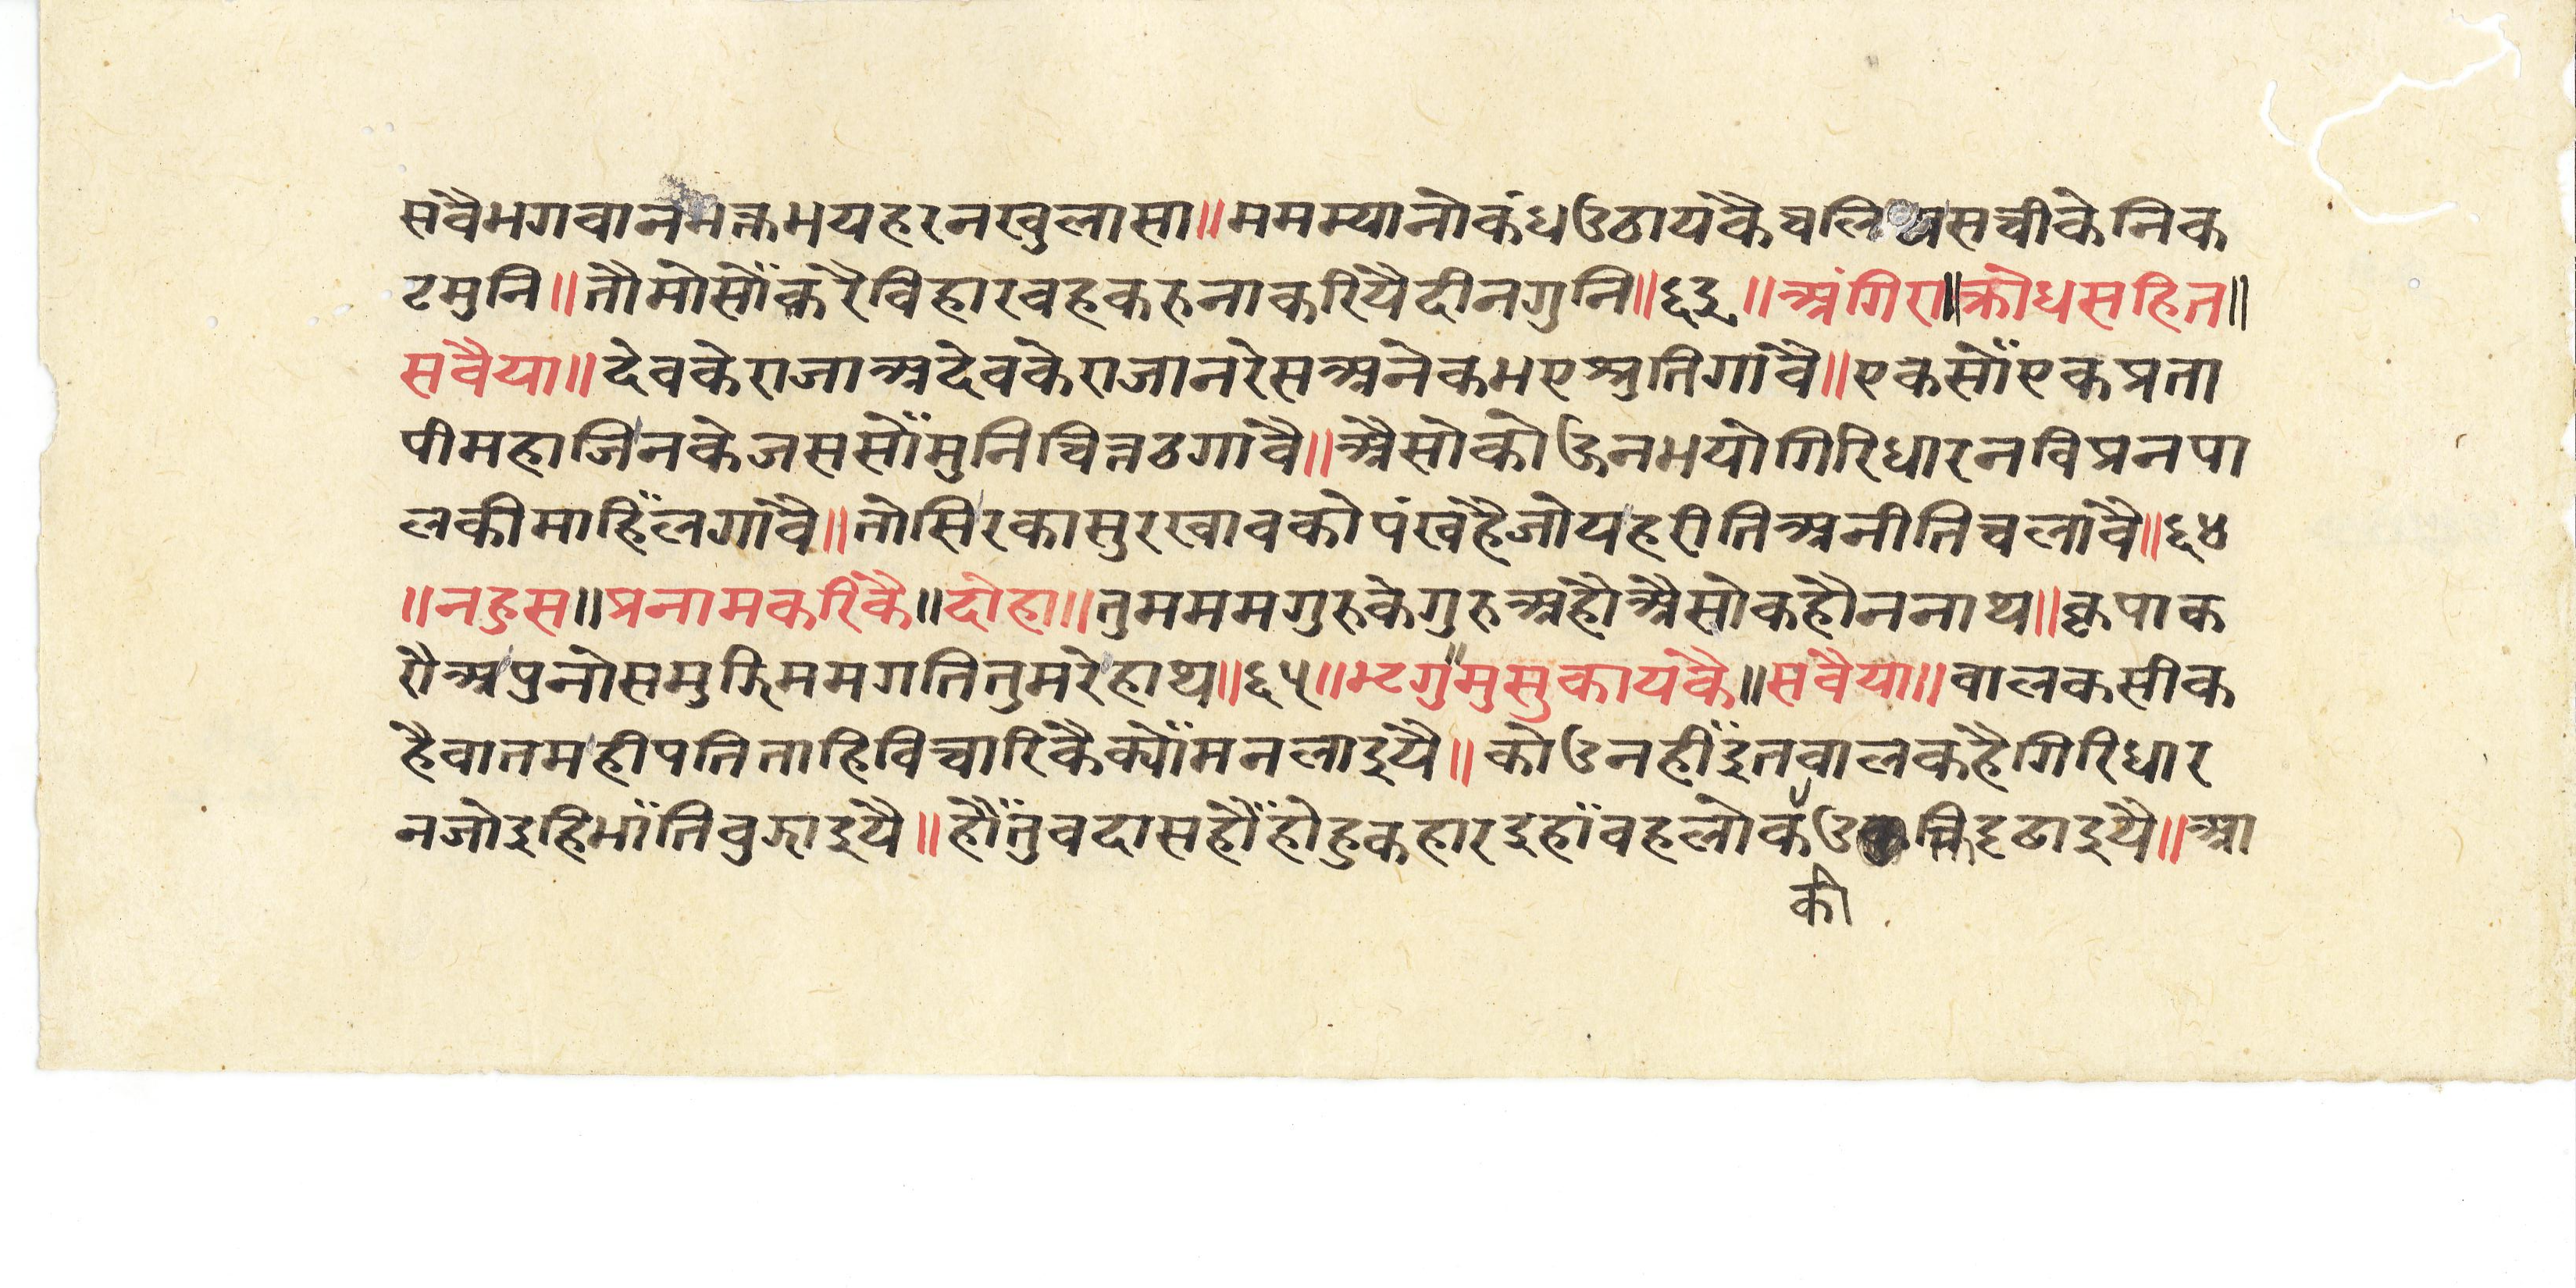 सवैभगवानभक्तभयहरनखुलासा॥ममम्यानोकंधउठायकैचलिअसचीकेनिक
टमुनि॥तौमोसौंकरैविहारवहकरुनाकरियैदीनगुनि॥६३॥अंगिरा॥क्रोधसहित॥
सवैया॥देवकेराजाअदेवकेराजानरेसअनेकभएश्रुतिगावै॥एकसौंएकप्रता
पीमहाजिनकेजससौंमुनिचित्तठगावै॥अैसोकोऊनभयोगिरिधारनविप्रनपा
लकीमाहिंलगावै॥तोसिरकासुरखावकोपंखहैजोयहरीतिअनीतिचलावै॥६४
॥नहुस॥प्रनामकरिकै॥दोहा॥तुमममगुरुकेगुरुअहौअैसोकहौननाथ॥कृपाक
रौअपुनोसमुझिममगतितुमरेहाथ॥६५॥भृगु॥मुसुकायकै॥सवैया॥वालकसीक
हैवातमहीपतिताहिविचारिकैक्यौंमनलाइयै॥कोउनहींइतवालकहैगिरिधार
नजोइहिभांतिवुझाइयै॥हौंतुवदासहौंहोहुकहारइहांवहलोककीउक्तिदृढाइयै॥आ